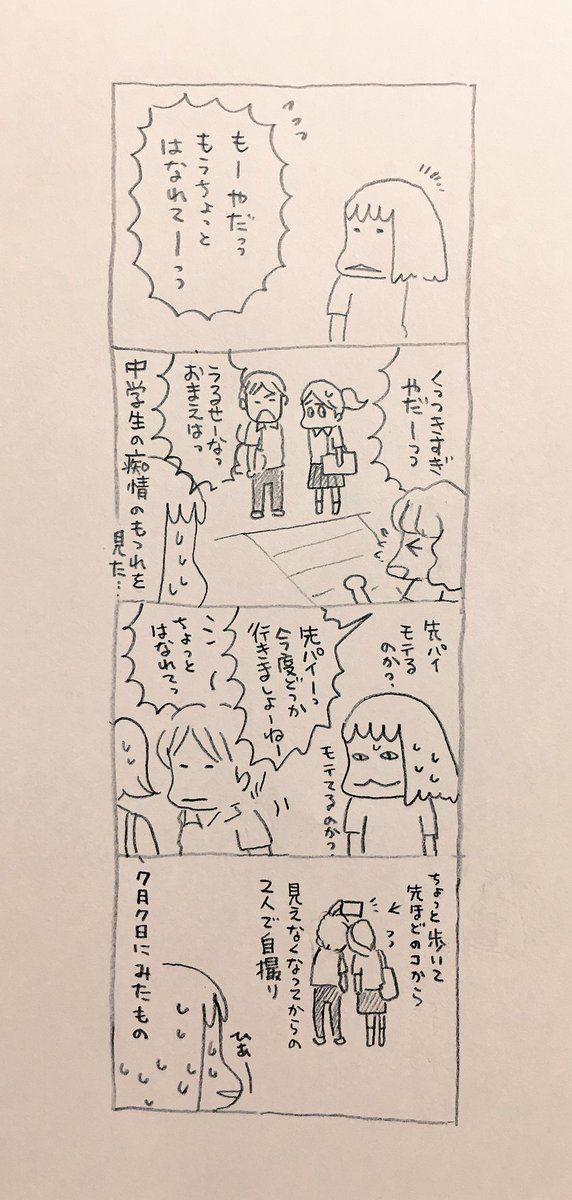 もーやだっっ
もうちょっと
はなれてーっっ
くっつきすぎ
やだーっっ
うるせーなっ
おまえはっ
中学生の痴情のもつれを
見た…
先パイ
モテる
のか?
先パイーっ
今度どっか
行きましょーねー
モテてるのか?
ちょっと
はなれてっ
ちょっと歩いて
先ほどのコから
見えなくなってからの
2人で自撮り
ひあー
7月7日にみたもの